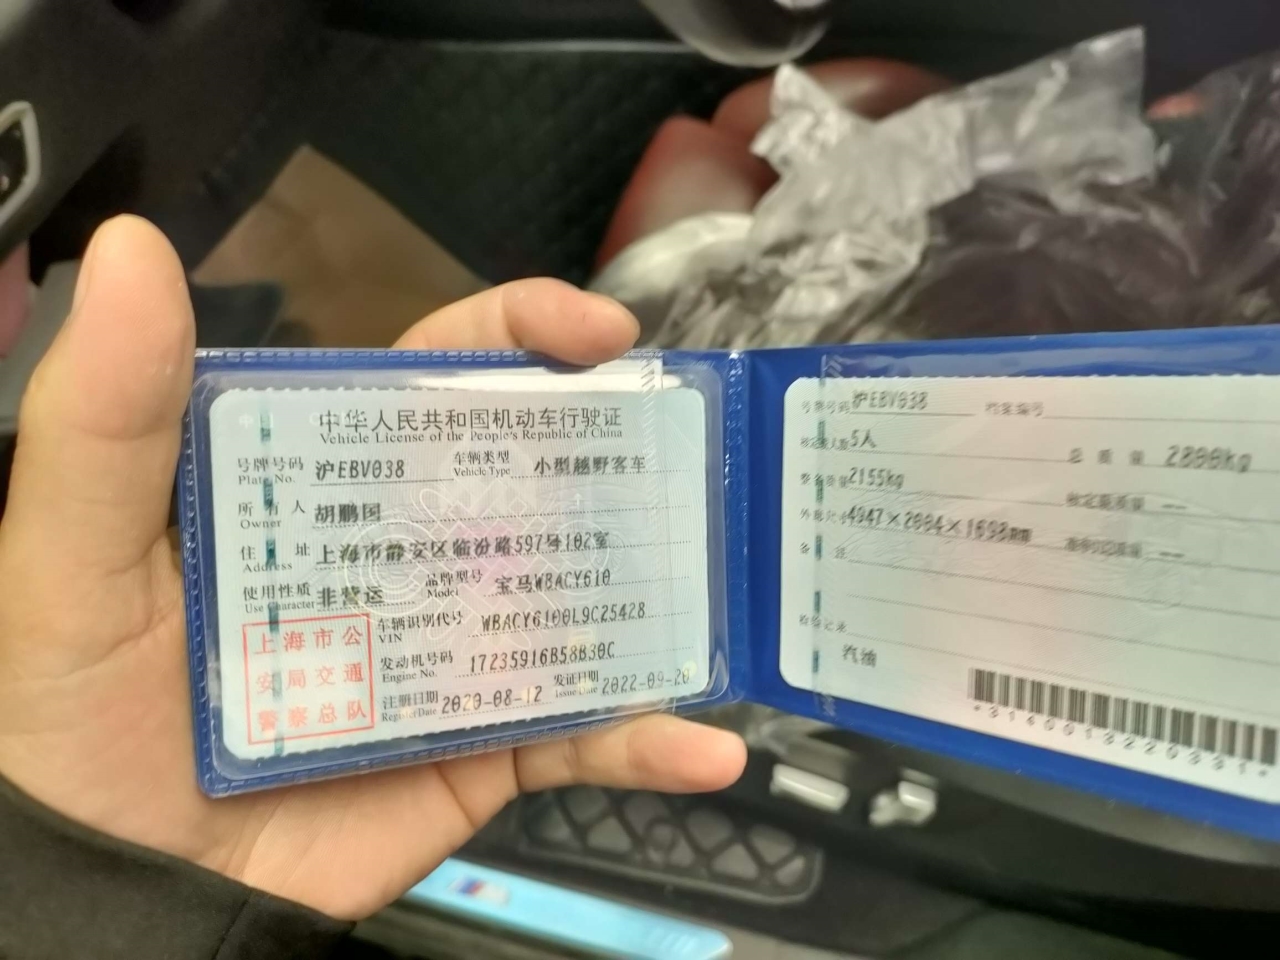 中华人民共和国机动车行驶证
Vehicle License of the People's Republic of China
号牌号码 沪EBV038 车辆类型 小型越野客车
Plate No. Vehicle Type
所有人 胡鹏国
Owner
住址 上海市静安区临汾路597号102室
Address
使用性质 非营运 品牌型号 宝马WBACY610
Use Character Model
车辆识别代号 WBACY6100L9C25428
VIN
发动机号码 17235916B58B30C
Engine No.
注册日期 2020-08-12 发证日期 2022-09-20
Register Date Issue Date
上海市公
安局交通
警察总队
号牌号码 沪EBV038 档案编号
核定载人数 5人 总质量 2800kg
整备质量 2155kg 核定载质量 --
外廓尺寸 4947×2004×1698mm 准牵引总质量 --
备注
检验记录
汽油